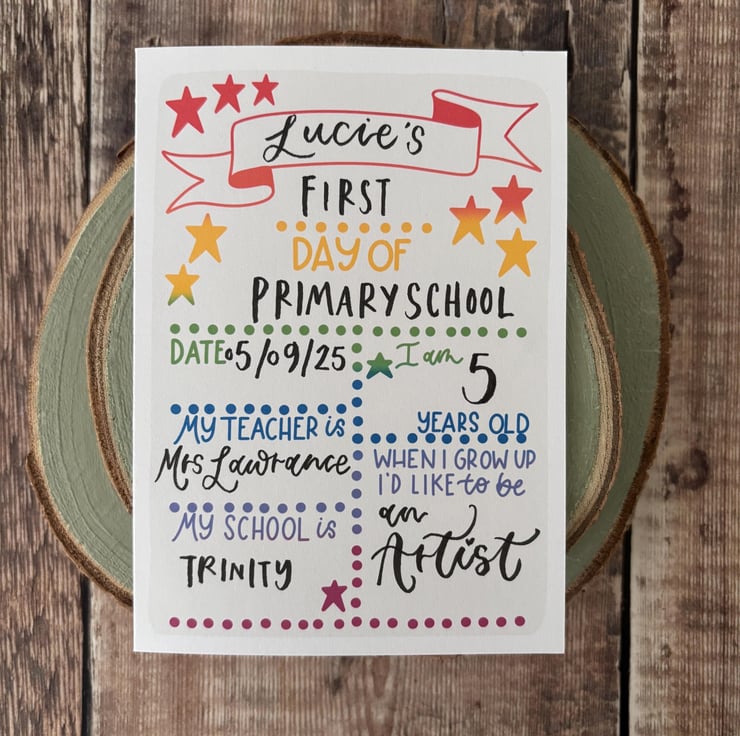 Lucie's
FIRST
DAY OF
PRIMARY SCHOOL
DATE 05/09/25
I am 5
YEARS OLD
MY TEACHER is
Mrs Lawrance
MY SCHOOL is
TRINITY
WHEN I GROW UP
I'D LIKE to be
an
Artist